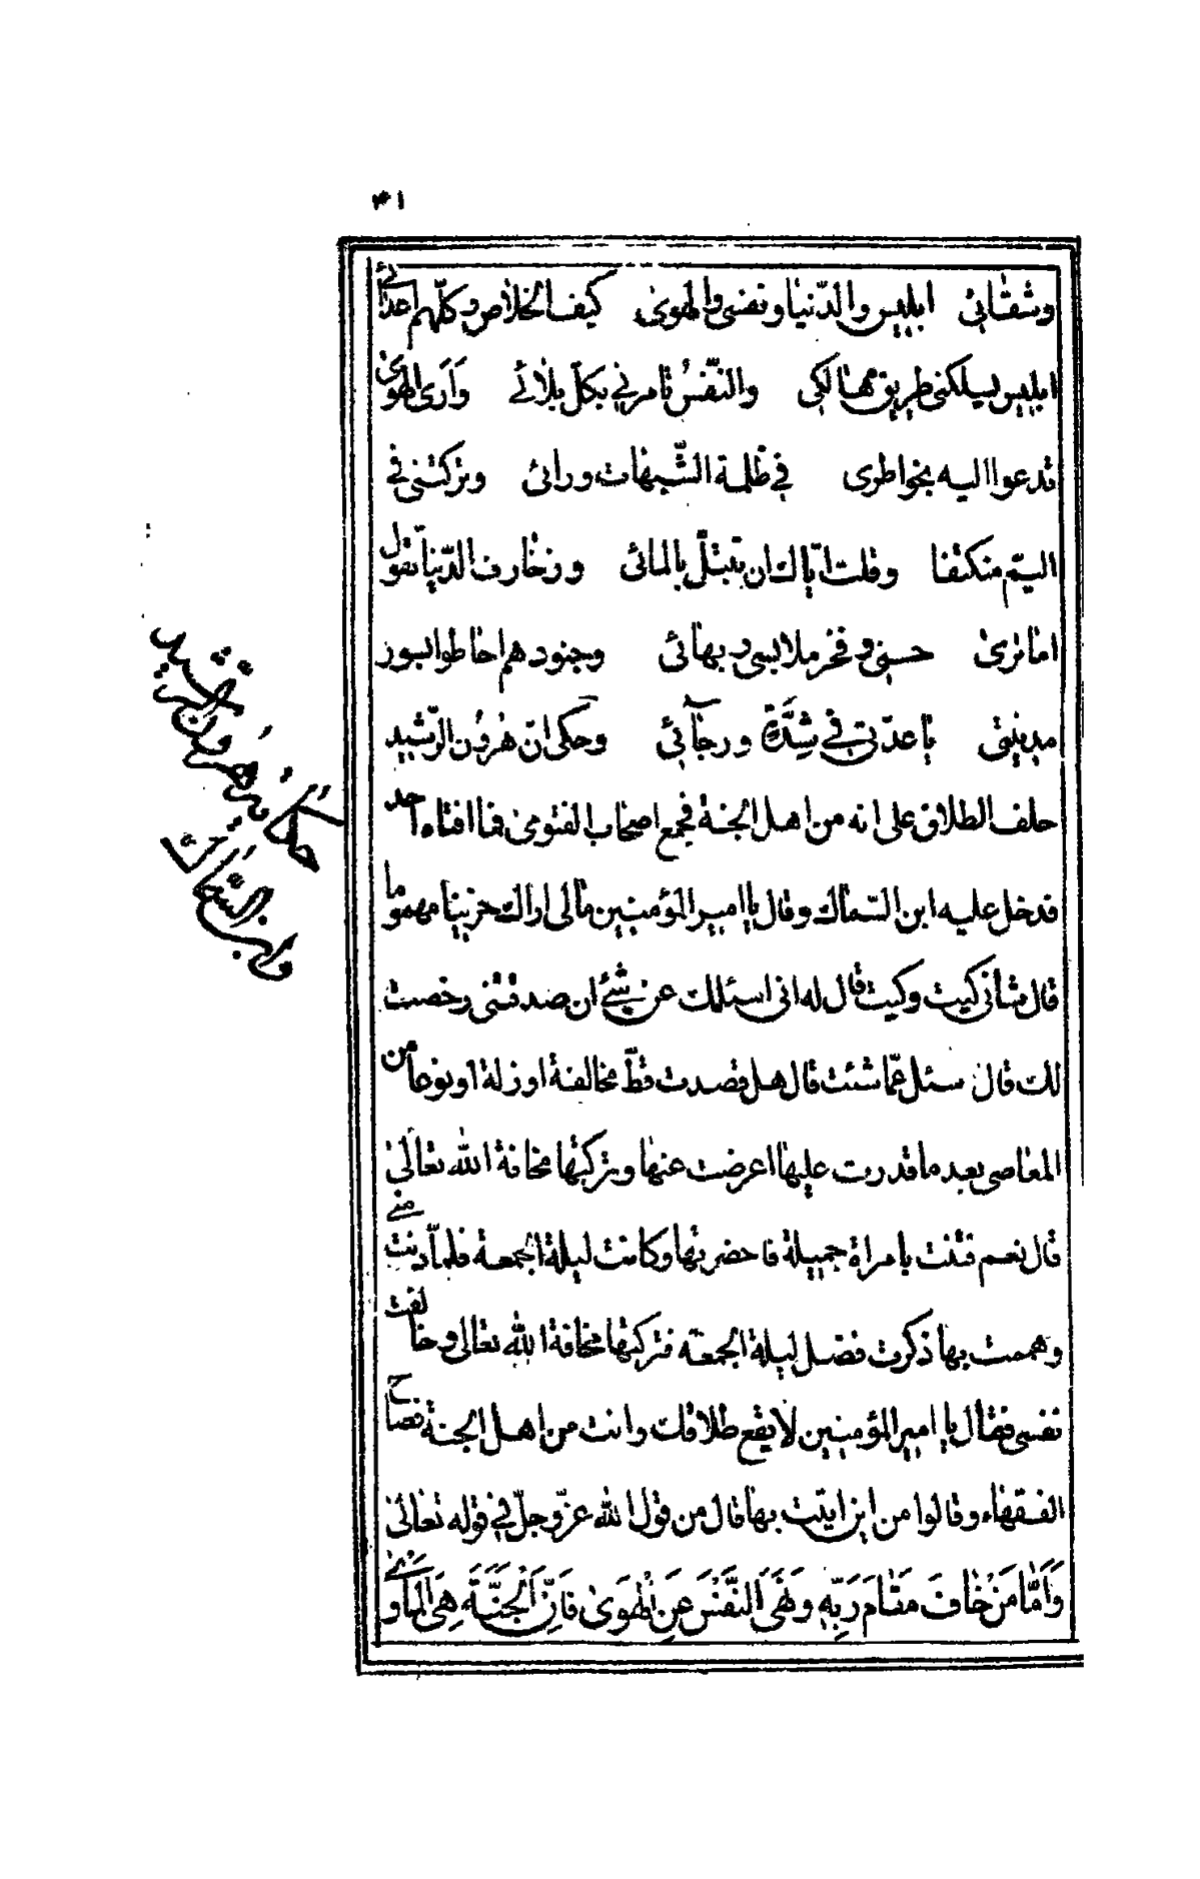 ۴۱
وشقائي ابليس والدّنيا ونفسى والهوى كيف الخلاص وكلّهم اعدائے
ابليس ليسلكنى طريق مهالكى والنّفسُ تامرني بكلّ بلائے وَاَرَى الهوىٰ
تدعوا اليه بخواطرى في ظلمة الشّبهات ورائى وتركتنى في
اليتم منكتفا وقلت ايّاك ان تبتلّ بالمائى وزخارف الدّنيا تقول
اما ترىٰ حسنى وفخر ملابسى وبهائي وجنودهم احاطوا بسور
مدينتى يا عدّتى في شِدَّةٍ ورجائي وحكى انّ هٰرُون الرّشيد
حلف الطلاق على انه من اهل الجنة فجمع اصحاب الفتوى فما افتاه احد
فدخل عليه ابن السّماك وقال يا امير المؤمنين مالى اراك حزينا مهموما
قال شأنى كيت وكيت قال له انى اسئلك عن شئ ان صدقتنى رخصت
لك قال سئل عمّا شئت قال هل قصدت قطّ مخالفة او زلة او نوعا من
المعاصى بعد ما قدرت عليها اعرضت عنها وتركتها مخافة الله تعالىٰ
قال نعم فتنت بامراة جميلة فاحضرتها وكانت ليلة الجمعة فلمّا دنت منے
وهممت بها ذكرت فضل ليلة الجمعة فتركتها مخافة الله تعالى وخالفت
نفسى فقال يا امير المؤمنين لا يقع طلاقك وانت من اهل الجنة فصاح
الفقهاء وقالوا من اين اتيت بها قال من قول الله عزّ وجلّ في قوله تعالىٰ
وَاَمَّا مَنْ خَافَ مَقَامَ رَبِّهٖ وَنَهَى النَّفْسَ عَنِ الْهَوىٰ فَاِنَّ الْجَنَّةَ هِىَ الْمَاْوىٰ
حكاية هٰرون الرّشيد
وابن السّماك